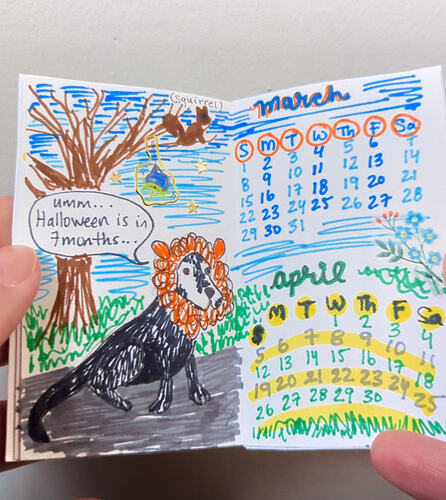 (squirrel)
umm...
Halloween is in
7 months...
march
S M T W Th F Sa
1 2 3 4 5 6 7
8 9 10 11 12 13 14
15 16 17 18 19 20 21
22 23 24 25 26 27 28
29 30 31
april
S M T W Th F Sa
1 2 3 4
5 6 7 8 9 10 11
12 13 14 15 16 17 18
19 20 21 22 23 24 25
26 27 28 29 30